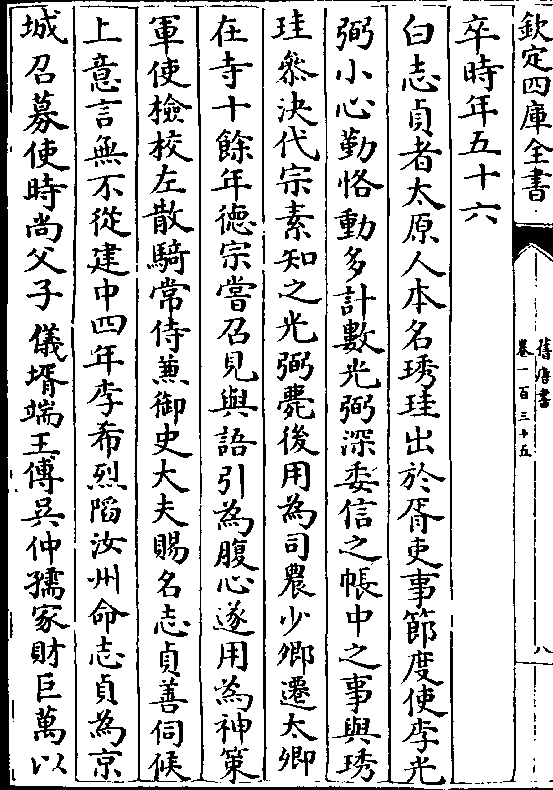 欽定四庫全書
舊唐書
卷一百三十五
八
卒時年五十六
白志貞者太原人本名琇珪出於胥吏事節度使李光
弼小心勤恪動多計數光弼深委信之帳中之事與琇
珪叅決代宗素知之光弼薨後用為司農少卿遷太卿
在寺十餘年德宗嘗召見與語引為腹心遂用為神策
軍使檢校左散騎常侍兼御史大夫賜名志貞善伺候
上意言無不從建中四年李希烈陷汝州命志貞為京
城召募使時尚父子儀壻端王傅吳仲孺家財巨萬以